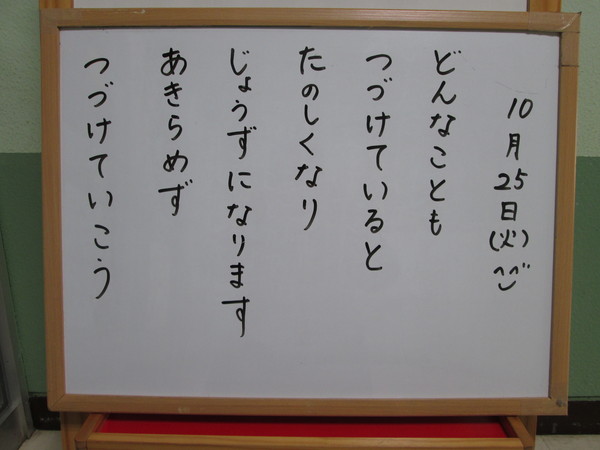 10月25日(火)
どんなことも
つづけていると
たのしくなり
じょうずになります
あきらめず
つづけていこう